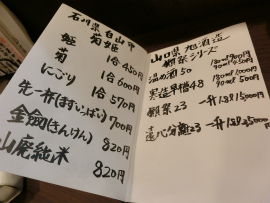 石川県白山市
菊姫
姫 1合 450円
菊 1合 600円
にごり 1合 570円
先一杯(ますいっぱい) 700円
金劔(きんけん) 820円
山廃純米 820円
山口県 旭酒造
獺祭シリーズ
温め酒50
寒造早槽48
獺祭23 一升1.8ℓ 15000円
遠心分離23 一升1.8ℓ